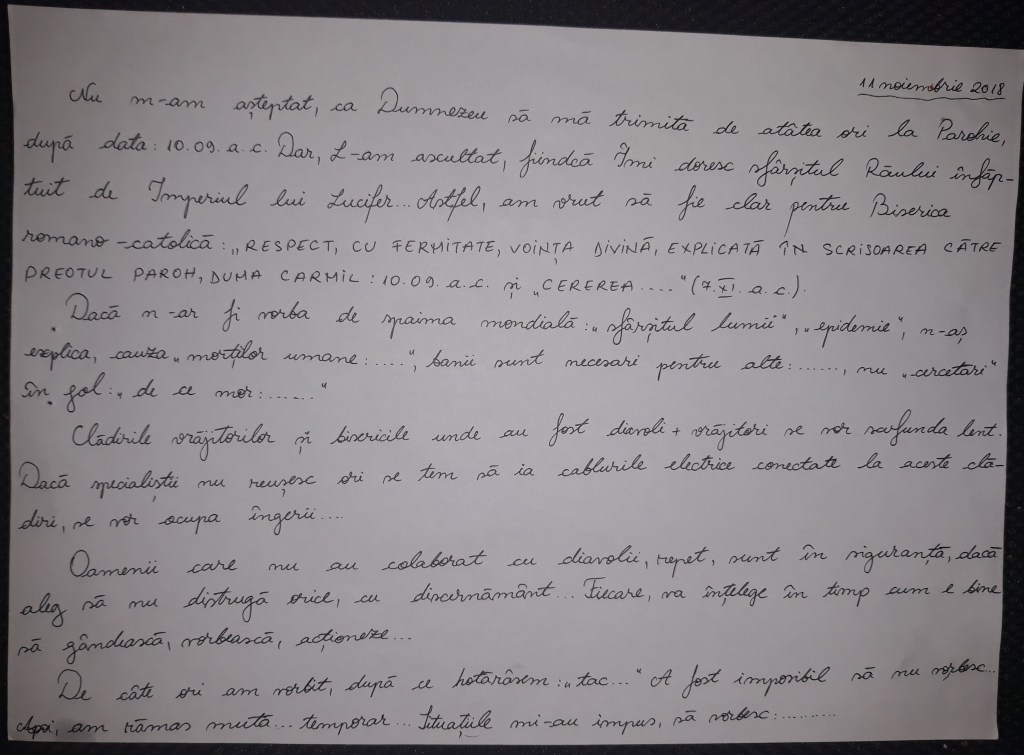 11 noiembrie 2018
Nu m-am așteptat, ca Dumnezeu să mă trimită de atâtea ori la Parohie,
după data: 10.09. a.c. Dar, L-am ascultat, fiindcă Îmi doresc sfârșitul Răului înfăp-
tuit de Imperiul lui Lucifer... Astfel, am vrut să fie clar pentru Biserica
romano-catolică: „RESPECT, CU FERMITATE, VOINȚA DIVINĂ, EXPLICATĂ ÎN SCRISOAREA CĂTRE
PREOTUL PAROH, DUMA CARMIL: 10.09. a.c. și „CEREREA...." (7.XI. a.c.).
Dacă n-ar fi vorba de spaima mondială: „sfârșitul lumii", „epidemie", n-aș
explica, cauza „morților umane:....", banii sunt necesari pentru alte:......, nu „cercetări"
în gol: „de ce mor:......"
Clădirile vrăjitorilor și bisericile unde au fost diavoli + vrăjitori se vor scufunda lent.
Dacă specialiștii nu reușesc ori se tem să ia cablurile electrice conectate la aceste clă-
diri, se vor ocupa îngerii....
Oamenii care nu au colaborat cu diavolii, repet, sunt în siguranță, dacă
aleg să nu distrugă orice, cu discernământ... Fiecare, va înțelege în timp cum e bine
să gândească, vorbească, acționeze...
De câte ori am vorbit, după ce hotărâsem: „tac..." A fost imposibil să nu vorbesc...
Apoi, am rămas mută... temporar... Situațiile mi-au impus, să vorbesc:..........